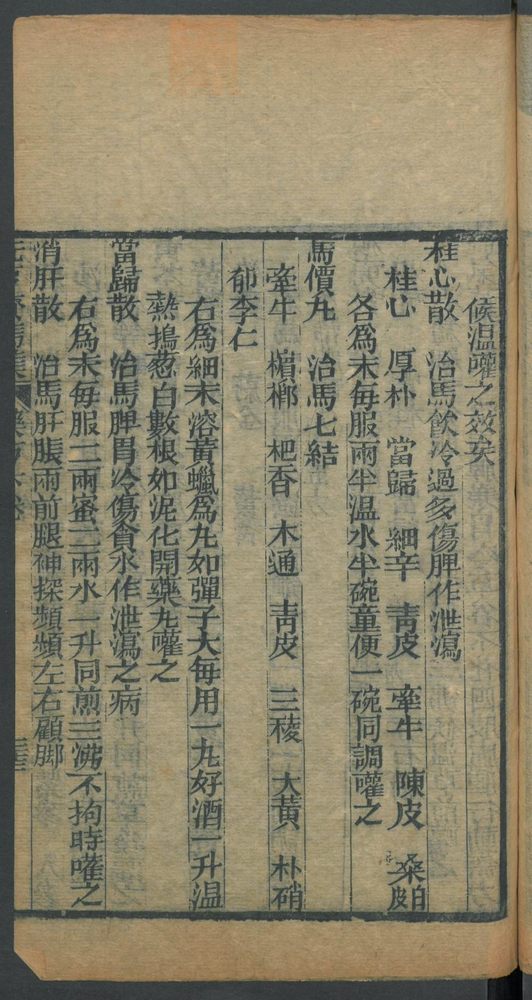 候温嚾之效矣
桂心散　治馬飲冷過多傷脾作泄瀉
桂心　厚朴　當歸　細辛　青皮　牽牛　陳皮　桑白皮
各爲末每服兩半温水半碗童便一碗同調嚾之
馬價丸　治馬七結
牽牛　檳榔　杷香　木通　青皮　三稜　大黄　朴硝
郁李仁
右爲細末溶黄蠟爲丸如彈子大每用一丸好酒一升温
熱搗葱白數根如泥化開藥丸嚾之
當歸散　治馬脾胃冷傷食水作泄瀉之病
右爲末每服二兩蜜二兩水一升同煎三沸不拘時嚾之
消肝散　治馬肝脹兩前腿神探頻頻左右顧脚